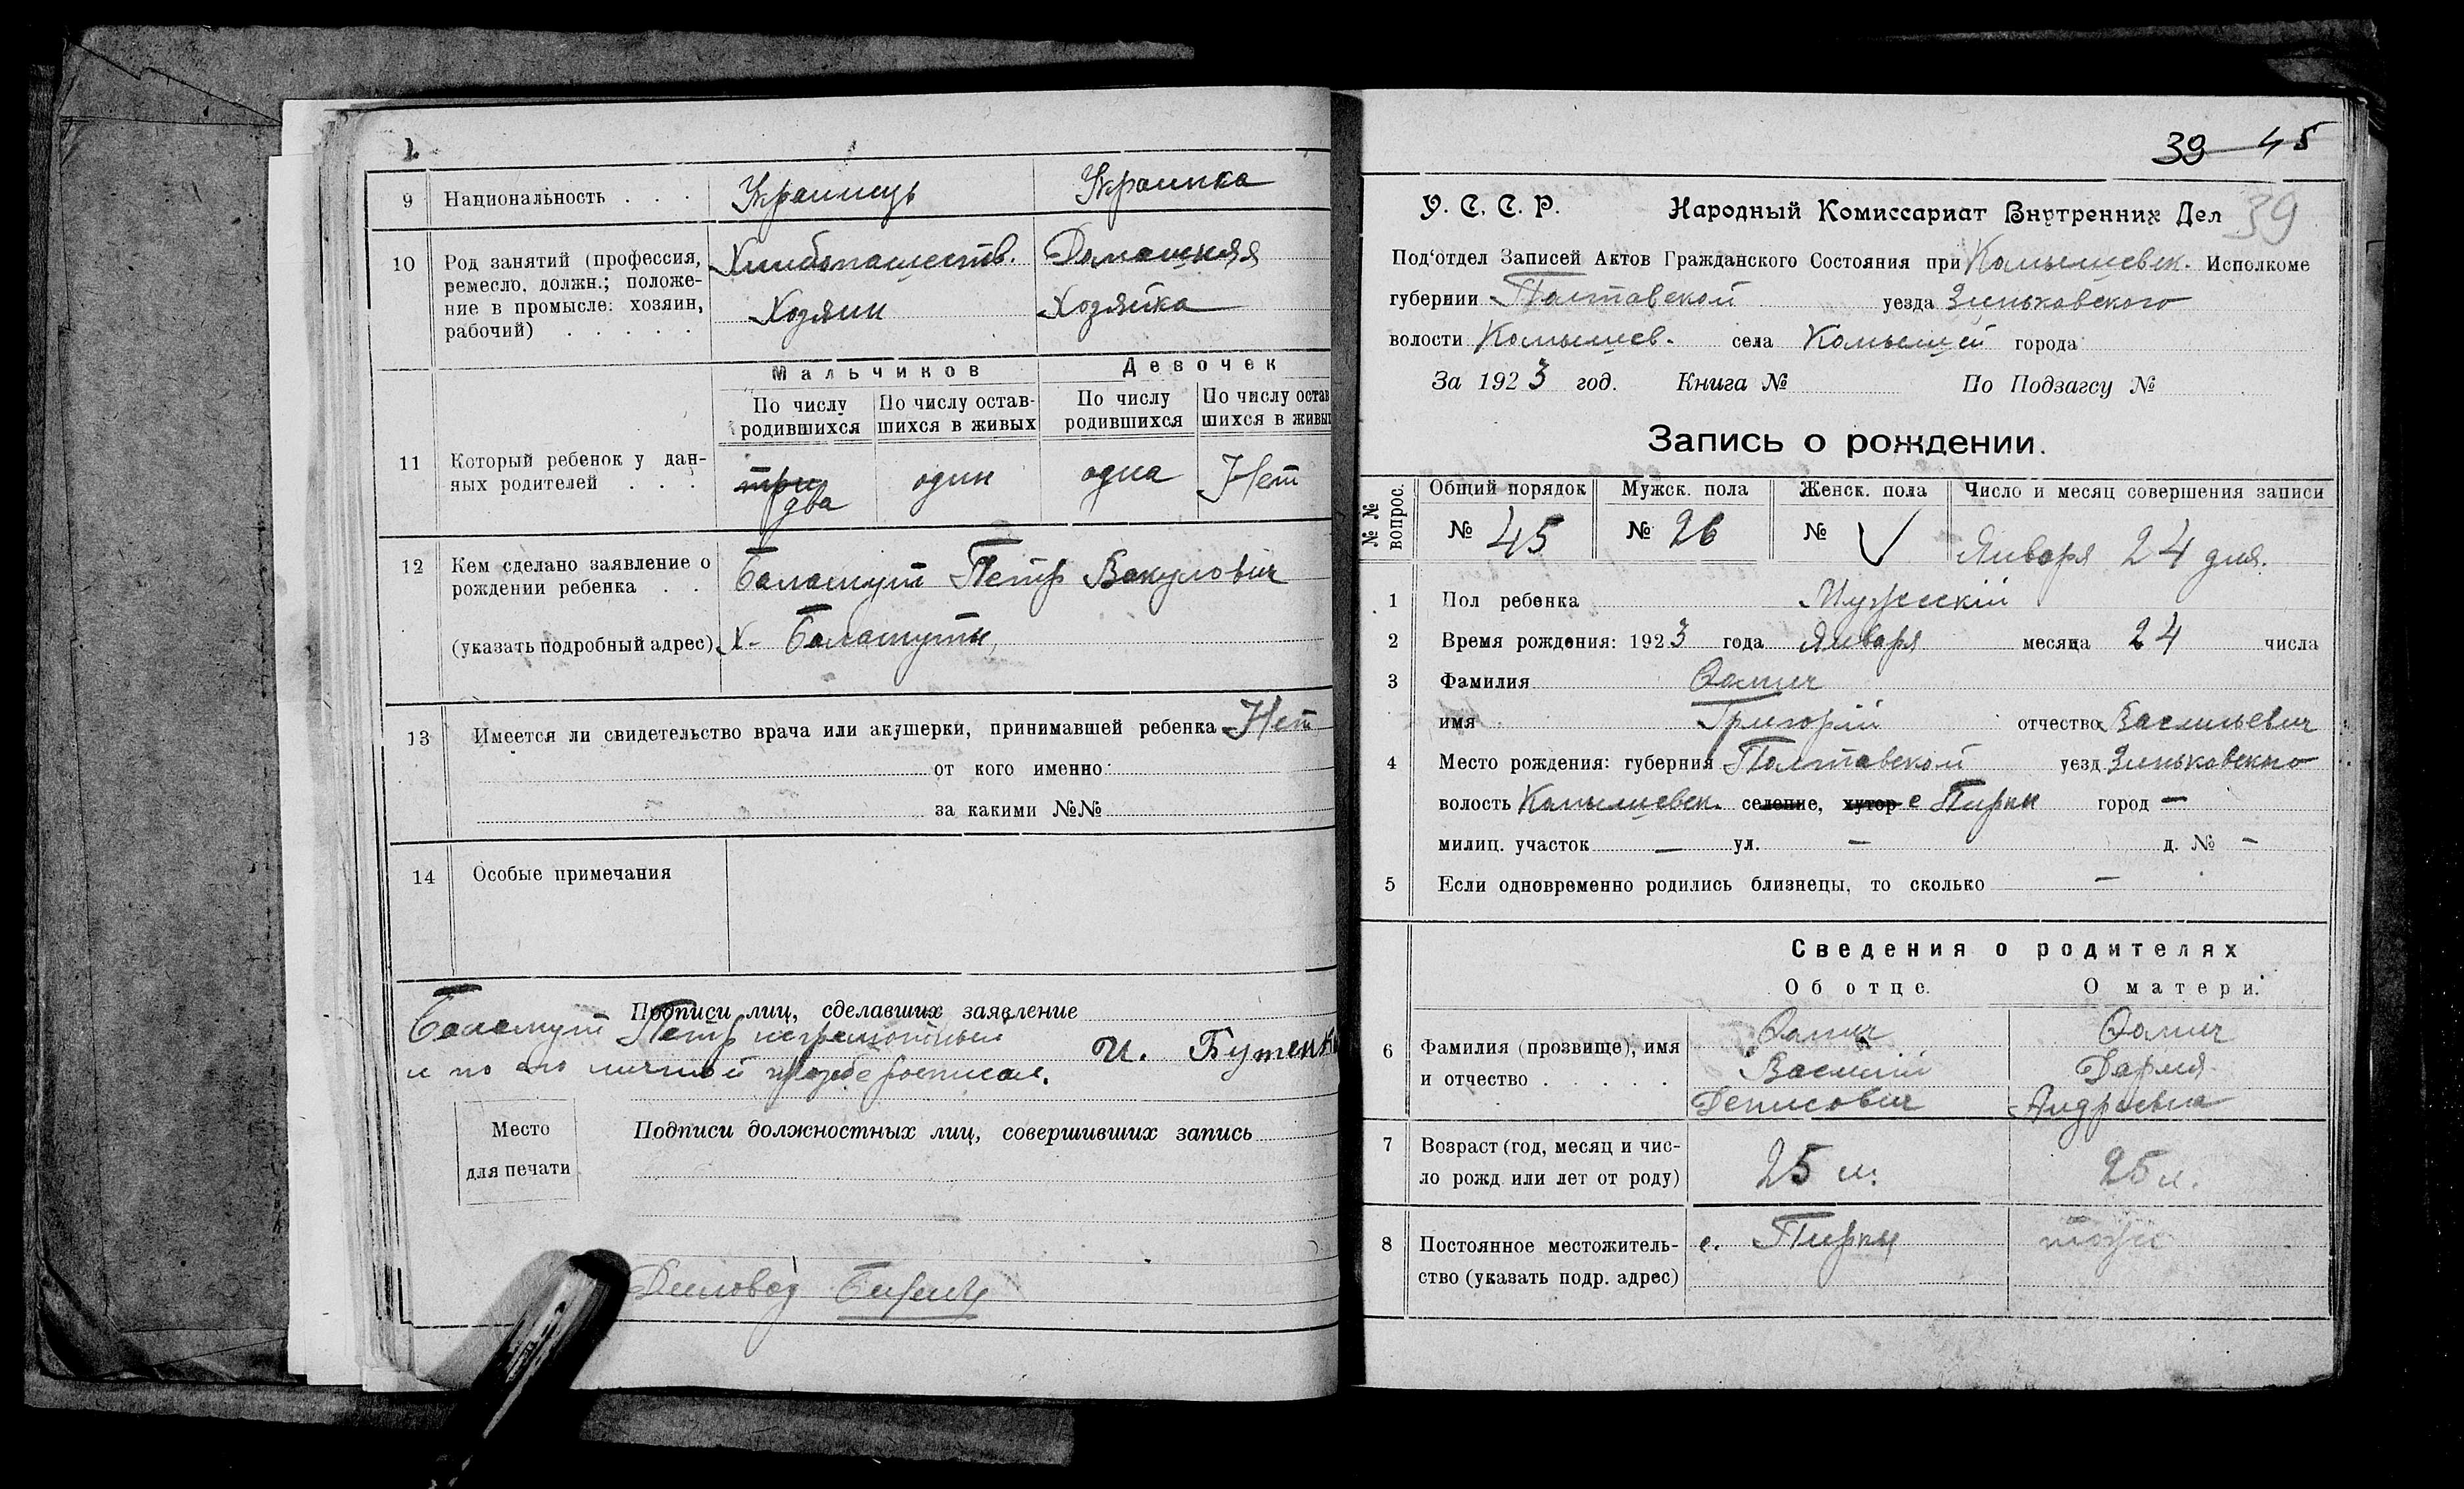 9 Национальность . . . Украинцъ Украинка
10 Род занятий (профессия, Хлебопашеств. Домашняя
ремесло, должн.; положе-
ние в промысле: хозяин, Хозяин Хозяйка
рабочий) . . . . .
Мальчиков Девочек
По числу По числу остав- По числу По числу остав
родившихся шихся в живых родившихся шихся в живы
11 Который ребенок у дан- три один одна Нет
ных родителей . . . два
12 Кем сделано заявление о
рождении ребенка . . Баламут Петр Вакулович
(указать подробный адрес) х. Баламуты,
13 Имеется ли свидетельство врача или акушерки, принимавшей ребенка Нет
от кого именно
за какими №№
14 Особые примечания
Подписи лиц, сделавших заявление
Баламут Петр неграмотный
и по его личной прозбе росписал. И. Бутенк
Место Подписи должностных лиц, совершивших запись
для печати
Деловод
39 45
У. С. С. Р. Народный Комиссариат Внутренних Дел 39
Под'отдел Записей Актов Гражданского Состояния при Комышевск. Исполкоме
губернии Полтавской уезда Зиньковского
волости Комышев. села Комышей города
За 1923 год. Книга № По Подзагсу №
Запись о рождении.
№№ вопрос. Общий порядок Мужск. пола Женск. пола Число и месяц совершения записи
№ 45 № 26 № V Января 24 дня.
1 Пол ребенка Мужескій
2 Время рождения: 1923 года Января месяца 24 числа
3 Фамилия
имя Григорій отчество Васильевич
4 Место рождения: губерния Полтавской уезд Зиньковского
волость Комышевск. селение, хутор с Пирки город —
милиц. участок — ул. — д. № —
5 Если одновременно родились близнецы, то сколько —
Сведения о родителях
Об отце. О матери.
6 Фамилия (прозвище), имя Василій Дария
и отчество . . . . . Денисович Андреевна
7 Возраст (год, месяц и чис-
ло рожд или лет от роду) 25 л. 25 л.
8 Постоянное местожитель- с. Пирки тоже
ство (указать подр. адрес)